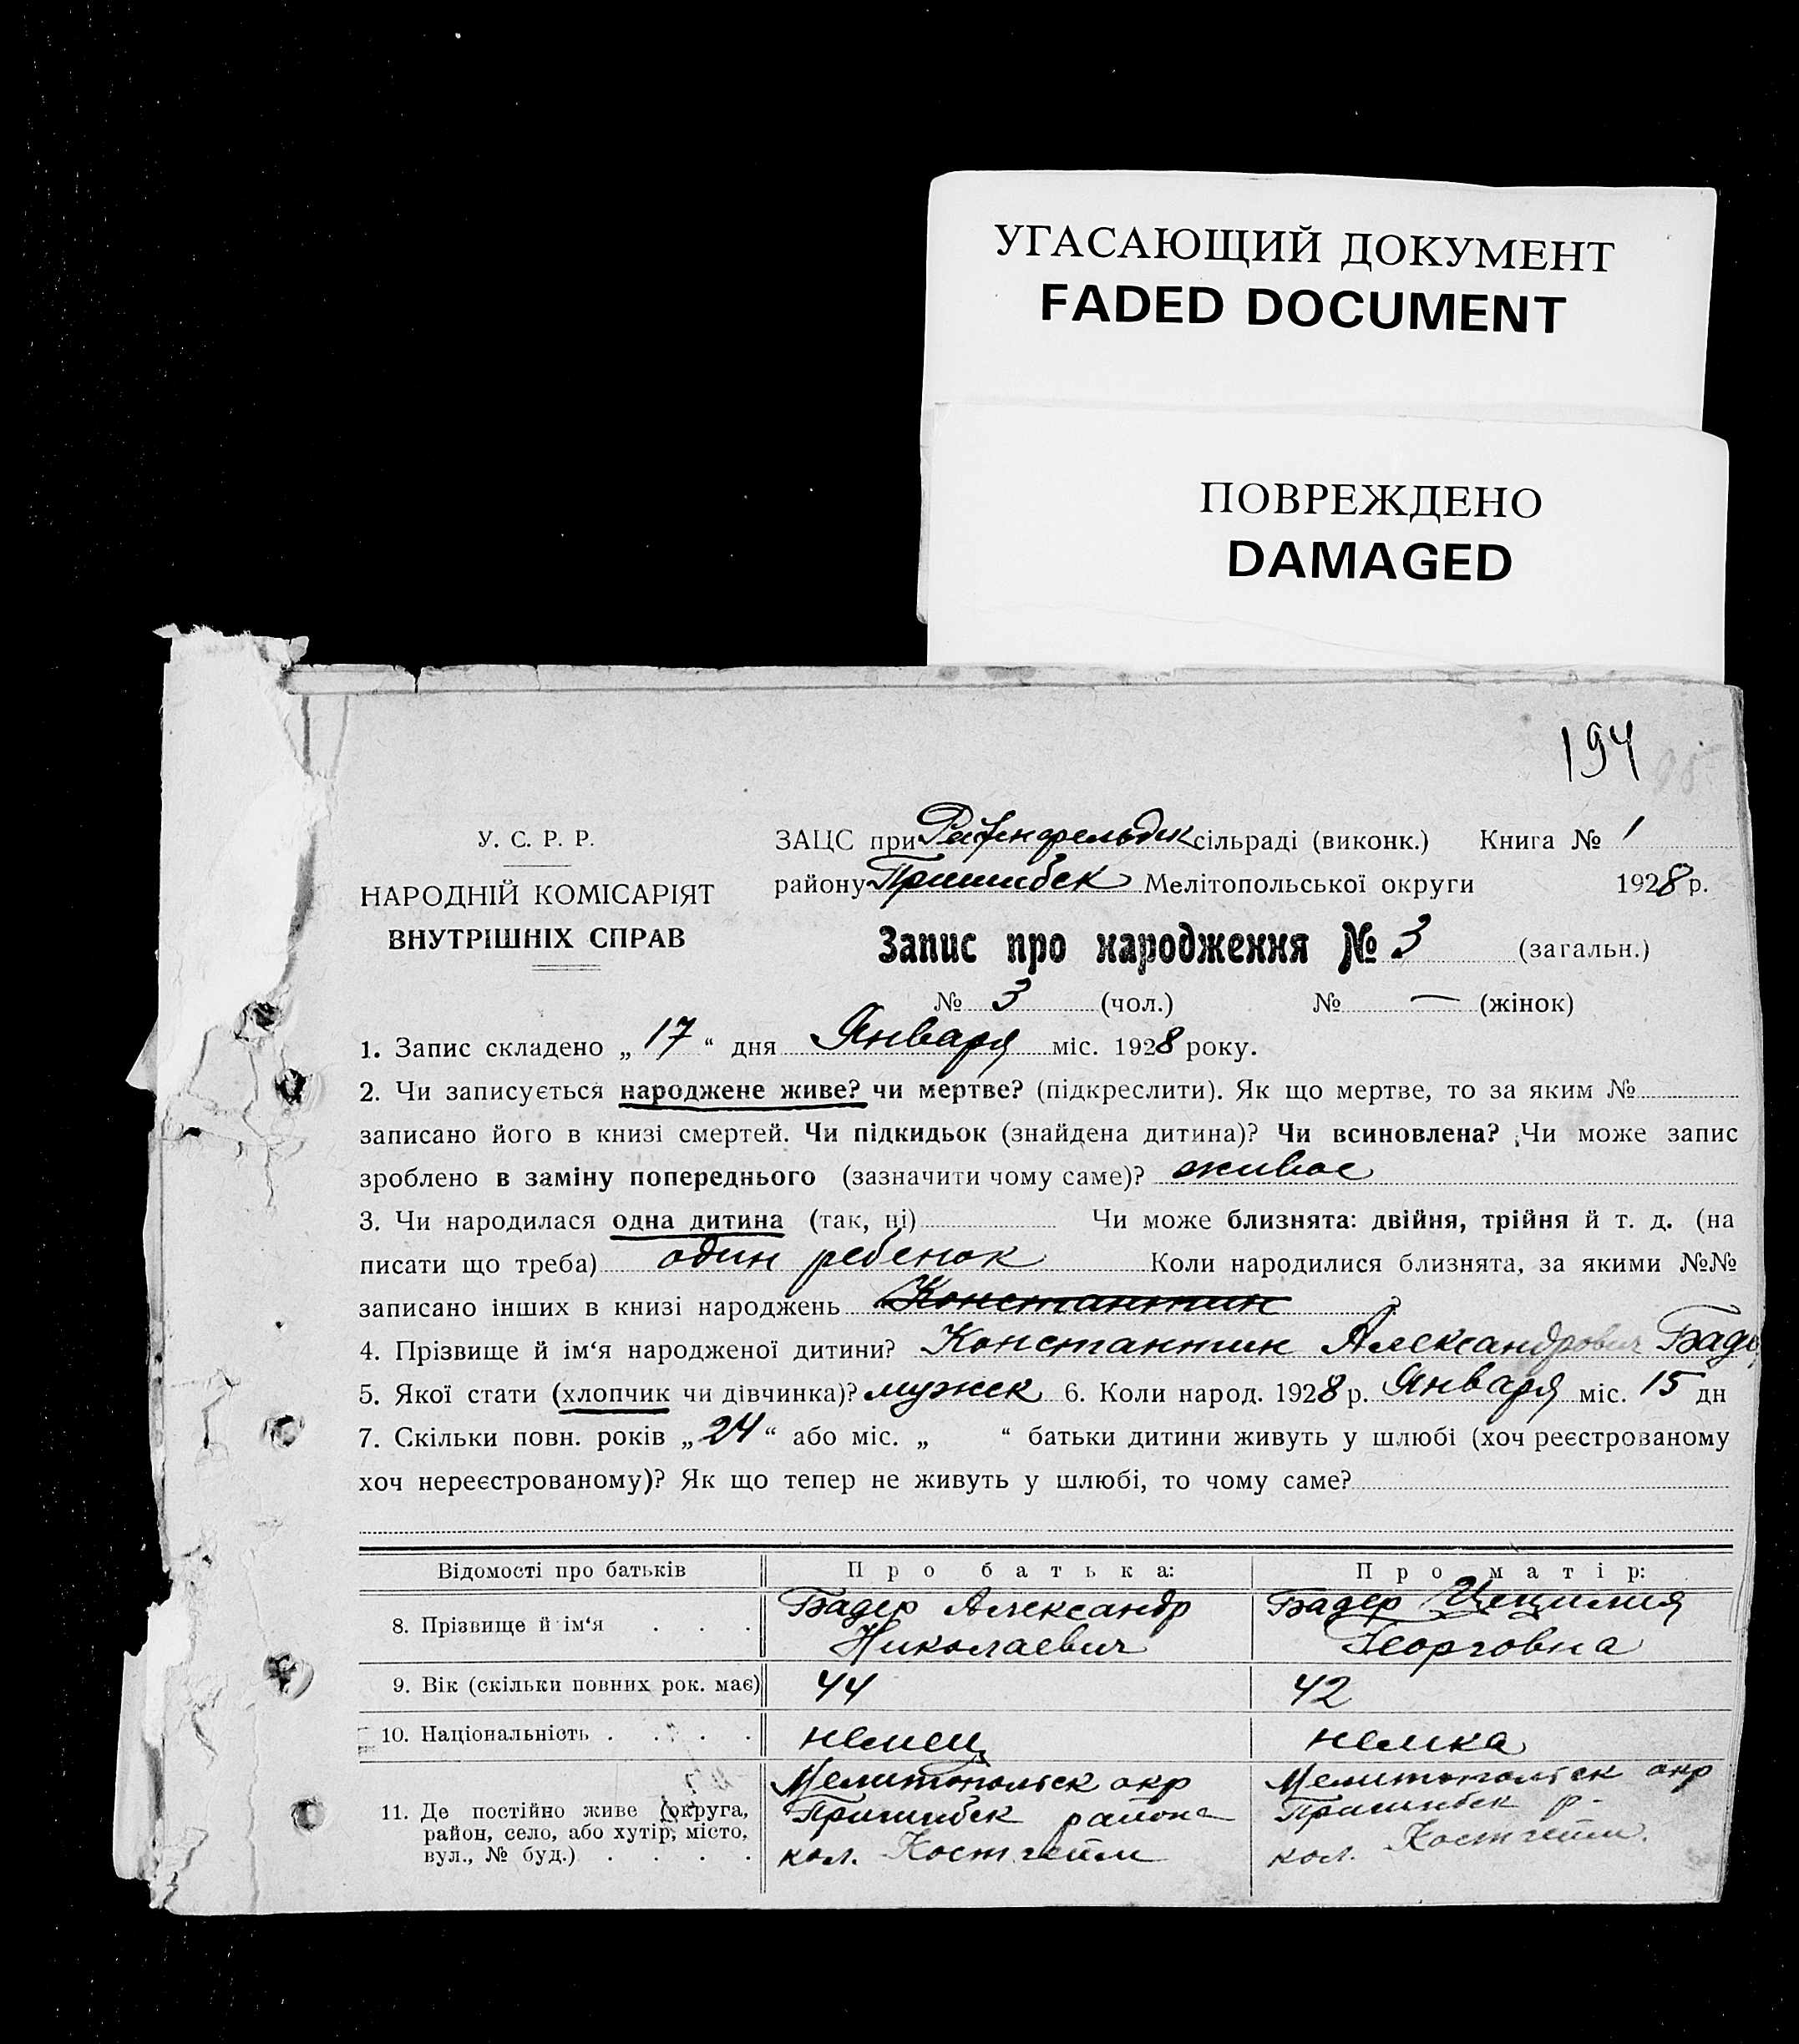 УГАСАЮЩИЙ ДОКУМЕНТ
FADED DOCUMENT
ПОВРЕЖДЕНО
DAMAGED
194
У. С. Р. Р.
НАРОДНІЙ КОМІСАРІЯТ
ВНУТРІШНІХ СПРАВ
ЗАЦС при Рейфенфельдск сільраді (виконк.) Книга № 1
району Пришибск Мелітопольської округи 1928 р.
Запис про народження № 3 (загальн.)
№ 3 (чол.) № — (жінок)
1. Запис складено „ 17 “ дня Января міс. 1928 року.
2. Чи записується народжене живе? чи мертве? (підкреслити). Як що мертве, то за яким №
записано його в книзі смертей. Чи підкидьок (знайдена дитина)? Чи всиновлена? Чи може запис
зроблено в заміну попереднього (зазначити чому саме)? живое
3. Чи народилася одна дитина (так, ні) Чи може близнята: двійня, трійня й т. д. (на
писати що треба) один ребенок Коли народилися близнята, за якими №№
записано інших в книзі народжень Константин
4. Прізвище й ім‘я народженої дитини? Константин Александрович Бадер
5. Якої стати (хлопчик чи дівчинка)? мужск 6. Коли народ. 1928 р. Января міс. 15 дн
7. Скільки повн. років „ 24 “ або міс. „ “ батьки дитини живуть у шлюбі (хоч реєстрованому
хоч нереєстрованому)? Як що тепер не живуть у шлюбі, то чому саме?
Відомості про батьків Про батька: Про матір:
8. Прізвище й ім‘я . . . Бадер Александр Николаевич Бадер Цецилия Георговна
9. Вік (скільки повних рок. має) 44 42
10. Національність . . . . немец немка
11. Де постійно живе (округа, район, село, або хутір, місто, вул., № буд.) . . . . Мелитопольск окр Пришибск района кол. Костгейм Мелитопольск окр Пришибск р- кол. Костгейм.